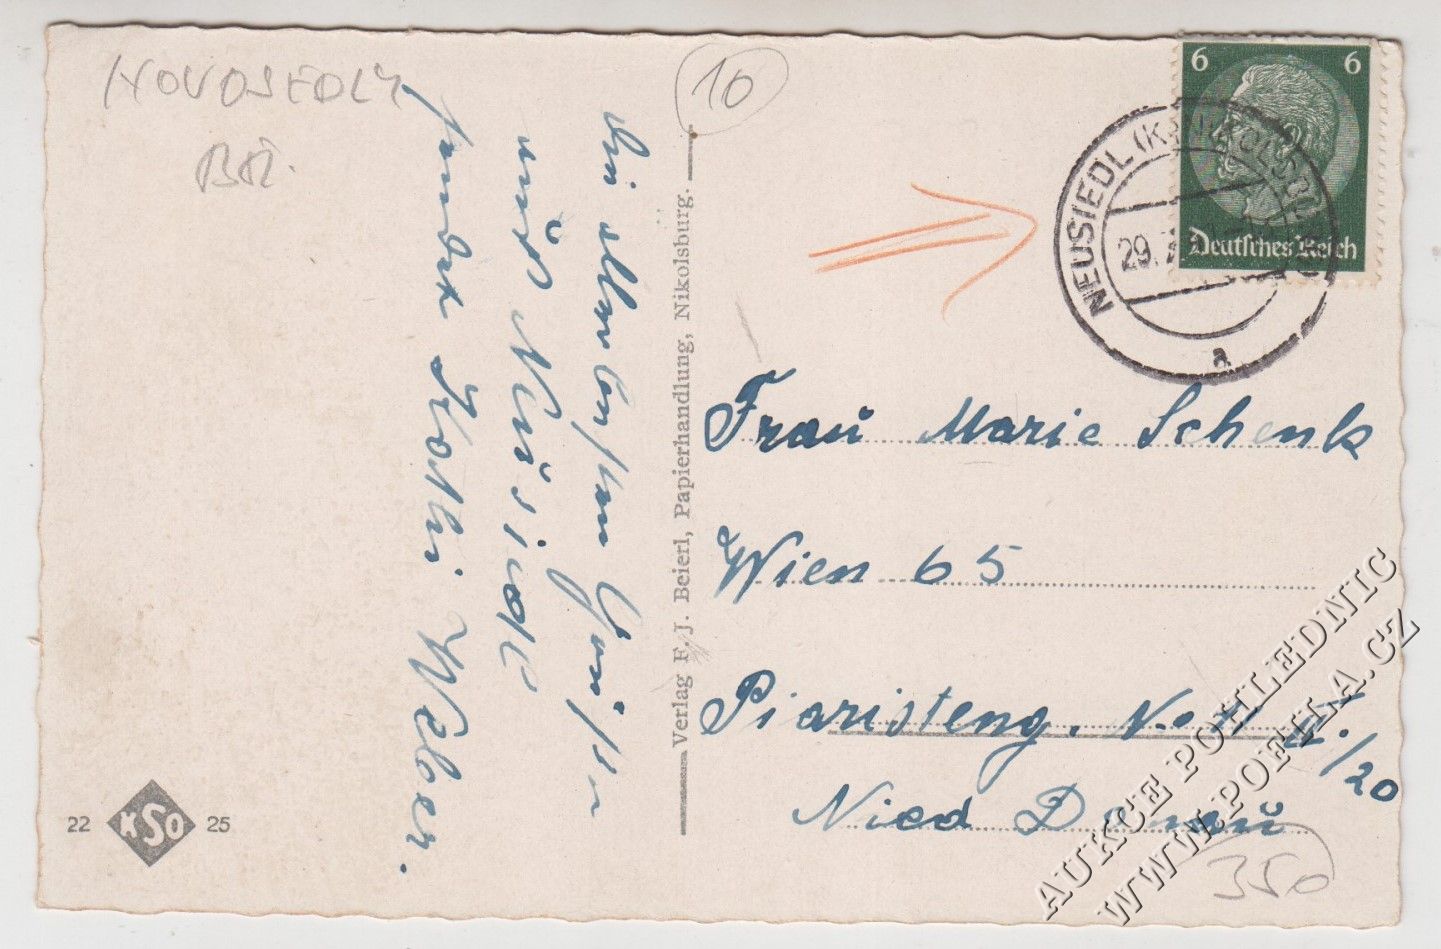 NOVOSEDLY
BŘ.
10
6 6
Deutsches Reich
NEUSIEDL (Kr. NIKOLSBURG)
29.
a
Die allerbesten Grüßen
aus Neusiedl
sendet Kathi Weber.
Verlag F. J. Beierl, Papierhandlung, Nikolsburg.
Frau Marie Schenk
Wien 65
Piaristeng. No
/20
Nied Donau
22 KSO 25
350
AUKCE POHLEDNIC
WWW.POEHLA.CZ